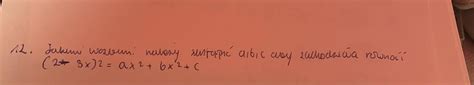 1.2. Jakimi wzorami należy zastąpić a i b i c aby zachodziła równość
(2 - 3x)2 = ax2 + bx2 + c